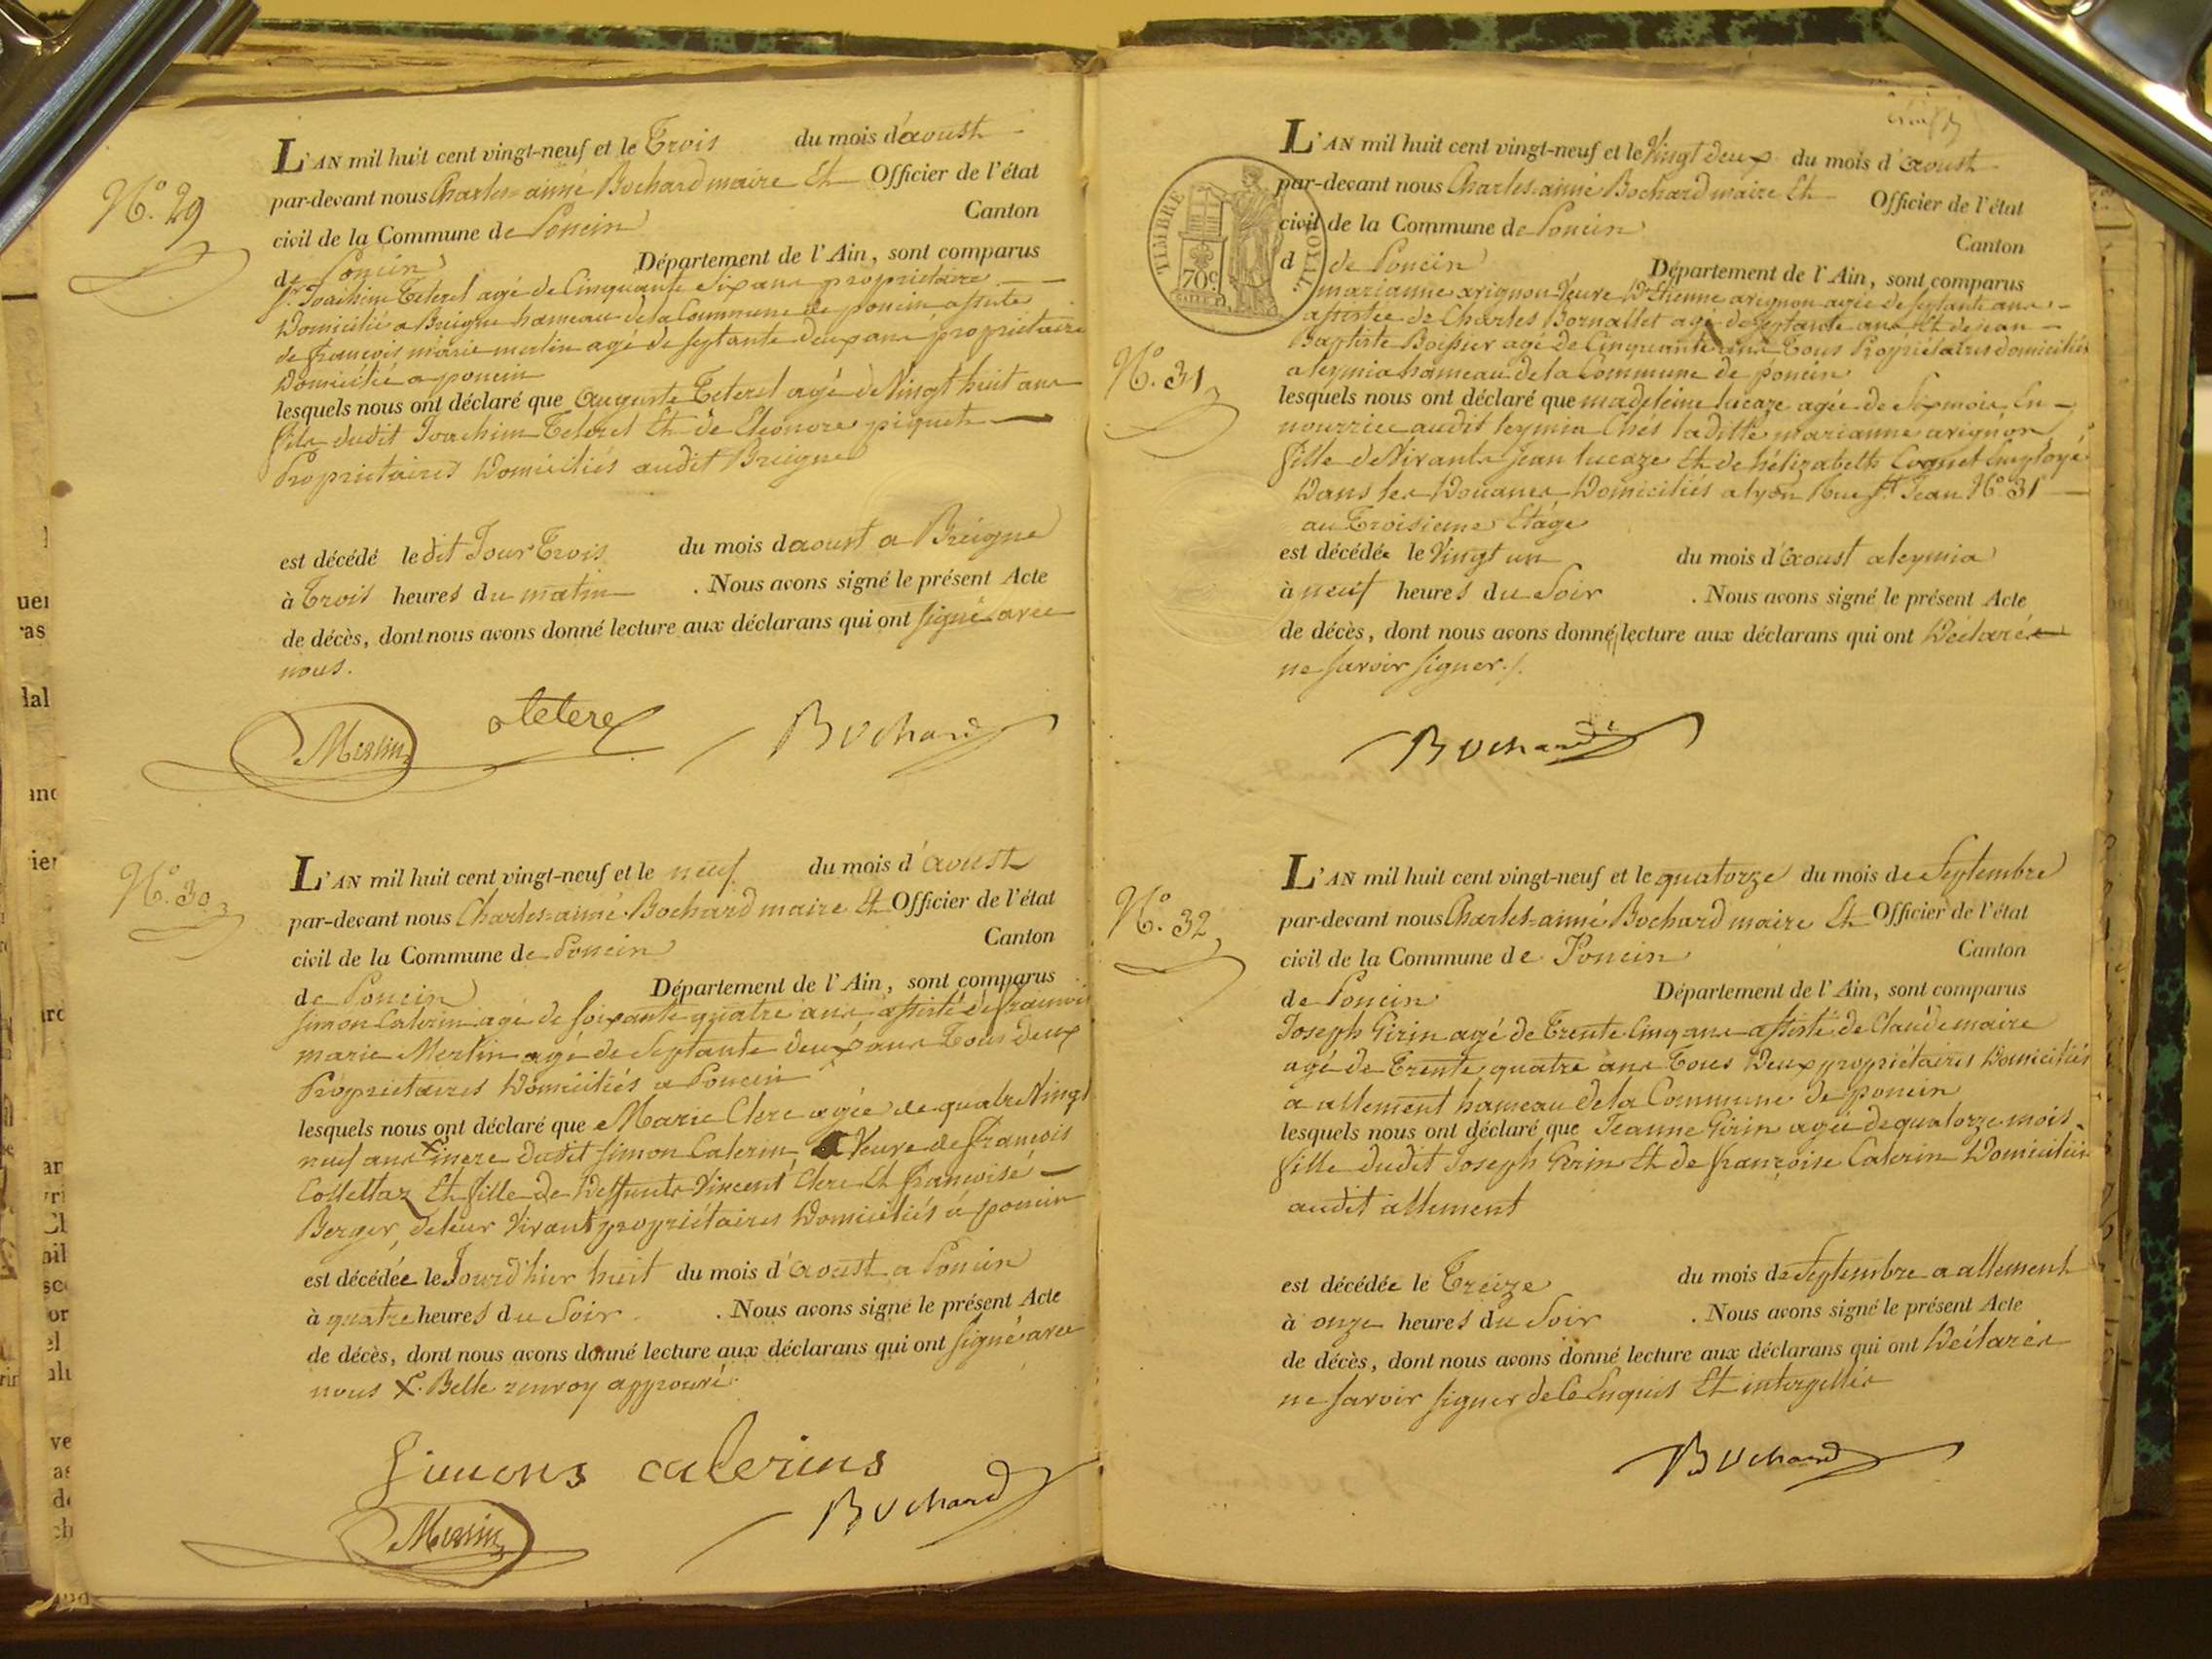 N.º 29
L'AN mil huit cent vingt-neuf et le Trois du mois d'aoust
par-devant nous Charles-aimé Bochard maire Et Officier de l'état
civil de la Commune de Poncin Canton
de Poncin Département de l'Ain, sont comparus
Sr. Joachim Teterel agé de Cinquante Six ans propriétaire
Domicilié a Breigne hameau de la Commune de poncin assisté
de françois marie merlin agé de septante deux ans propriétaire
Domicilié a poncin
lesquels nous ont déclaré que Auguste Teterel agé de Vingt huit ans
fils dudit Joachim Teterel Et de Eleonore piquet
Propriétaires Domiciliés audit Breigne
est décédé le dit Jour Trois du mois daoust a Breigne
à Trois heures du matin . Nous avons signé le présent Acte
de décès, dont nous avons donné lecture aux déclarans qui ont signé avec
nous.
Merlin Bochard
N.º 30
L'AN mil huit cent vingt-neuf et le neuf du mois d'aoust
par-devant nous Charles-aimé Bochard maire Et Officier de l'état
civil de la Commune de Poncin Canton
de Poncin Département de l'Ain, sont comparus
Simon Calerin agé de soixante quatre ans assisté de françois
marie Merlin agé de Septante deux ans Tous Deux
Propriétaires Domiciliés a Poncin
lesquels nous ont déclaré que Marie Clerc agée de quatre Vingt
neuf ans X mere dudit Simon Calerin, Veuve de françois
Collettaz Et fille de Deffunts Vincent Clerc Et françoise
Berger, de leur Vivant propriétaires Domiciliés á poncin
est décédée le Jourd'hier huit du mois d'aoust a Poncin
à quatre heures du Soir . Nous avons signé le présent Acte
de décès, dont nous avons donné lecture aux déclarans qui ont signé avec
nous X. Belle renvoy approuvé.
Simons calerins
Merlin Bochard
TIMBRE ROYAL
70c
L'AN mil huit cent vingt-neuf et le Vingt deux du mois d'aoust
par-devant nous Charles-aimé Bochard maire Et Officier de l'état
civil de la Commune de Poncin Canton
d de Poncin Département de l'Ain, sont comparus
marianne avignon Veuve D'Etienne avignon agée de septante ans
assistée de Charles Bornallet agé de septante ans Et de jean
Baptiste Boissier agé de Cinquante ans Tous Propriétaires domiciliés
N.º 31
a leymia hameau de la Commune de poncin
lesquels nous ont déclaré que madeleine lucaze agée de Six mois En
nourrice audit leymia Chés laditte marianne avignon
fille de Vivants jean lucaze Et de hélizabeth Coquet Employé
Dans les Douanes Domiciliés a lyon Rue St. Jean N.º 31
au Troisieme Etage
est décédée le Vingt un du mois d'aoust a leymia
à neuf heures du Soir . Nous avons signé le présent Acte
de décès, dont nous avons donné lecture aux déclarans qui ont Déclarés
ne savoir signer./.
Bochard
N.º 32
L'AN mil huit cent vingt-neuf et le quatorze du mois de Septembre
par-devant nous Charles-aimé Bochard maire Et Officier de l'état
civil de la Commune de Poncin Canton
de Poncin Département de l'Ain, sont comparus
Joseph Girin agé de Trente Cinq ans assisté de Claude maire
agé de Trente quatre ans Tous Deux propriétaires Domiciliés
a allement hameau de la Commune de poncin
lesquels nous ont déclaré que Jeanne Girin agée de quatorze mois
fille dudit Joseph Girin Et de françoise Calerin Domiciliés
audit allement
est décédée le Treize du mois de Septembre a allement
à onze heures du Soir . Nous avons signé le présent Acte
de décès, dont nous avons donné lecture aux déclarans qui ont Déclarés
ne savoir signer de Ce Enquis Et interpellés
Bochard